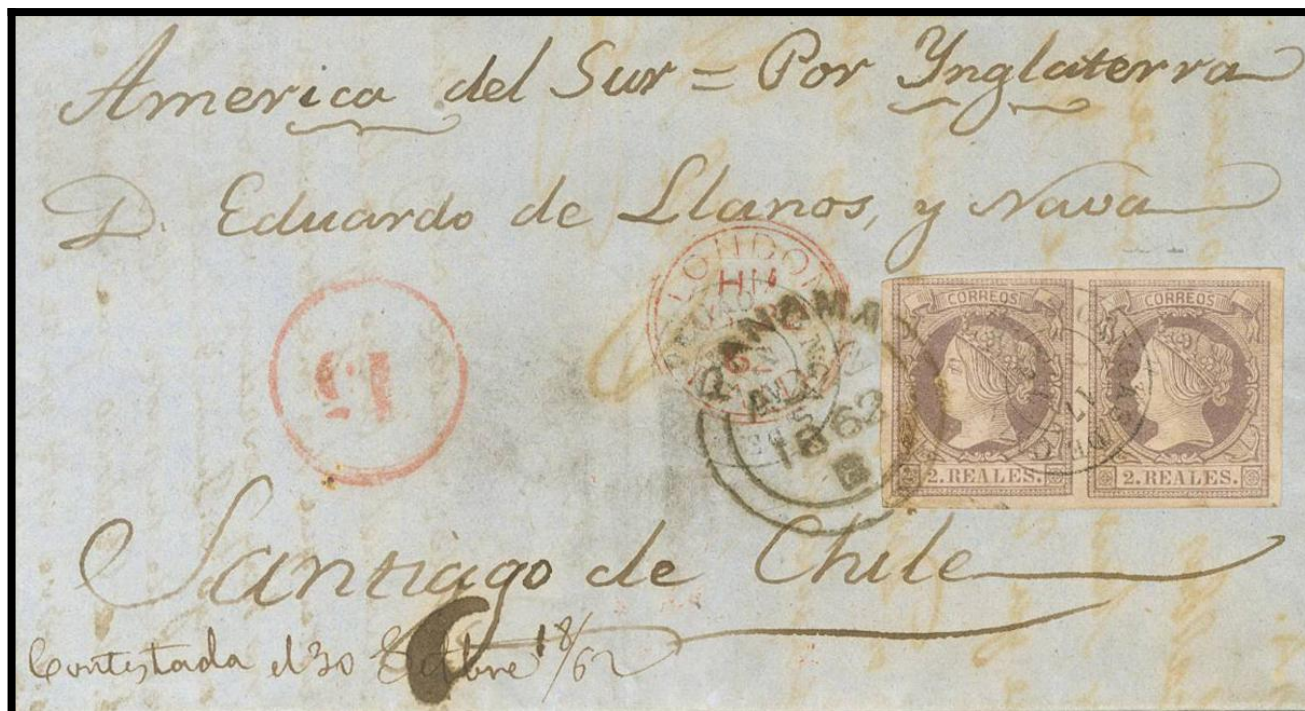 America del Sur = Por Ynglaterra
D. Eduardo de Llanos, y Nava
LONDON
PANAMA
AU
1862
15
CORREOS CORREOS
2. REALES. 2. REALES.
Santiago de Chile
Contestada el 30 18/62